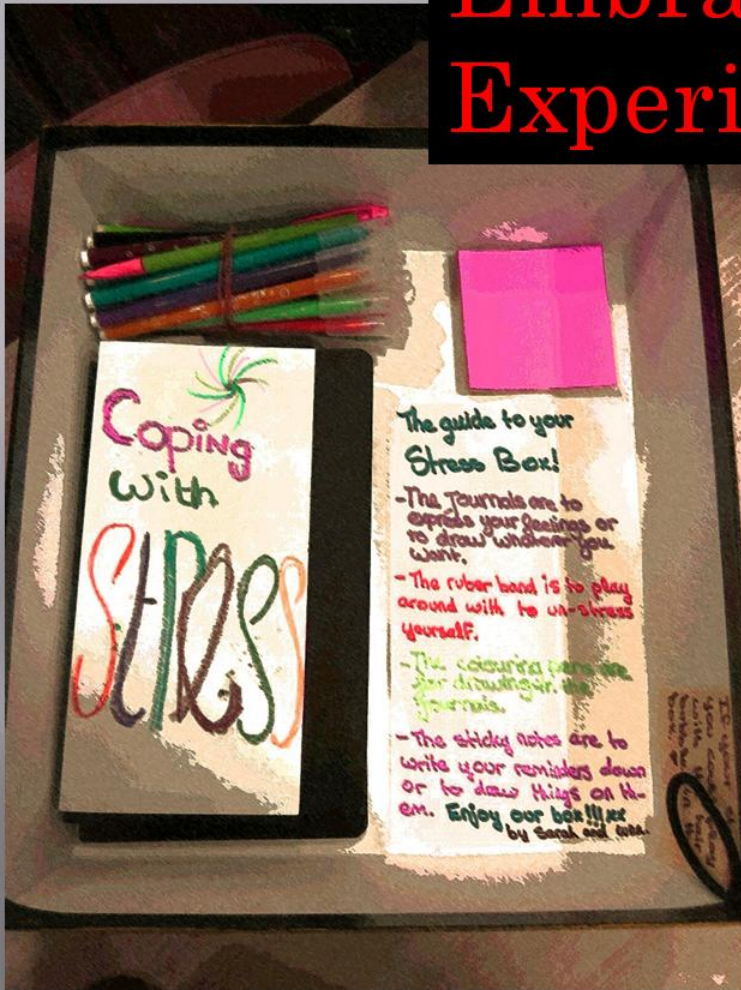 Embra
Experi
Coping
with
STRESS
The guide to your
Stress Box!
-The Journals are to
express your feelings or
to draw whatever you
want.
- The ruber band is to play
around with to un-stress
yourself.
-The colouring pens are
for drawing in the
journals.
-The sticky notes are to
write your reminders down
or to draw things on th-
em. Enjoy our box!!!xx
by Sarah and
If your
you can
with